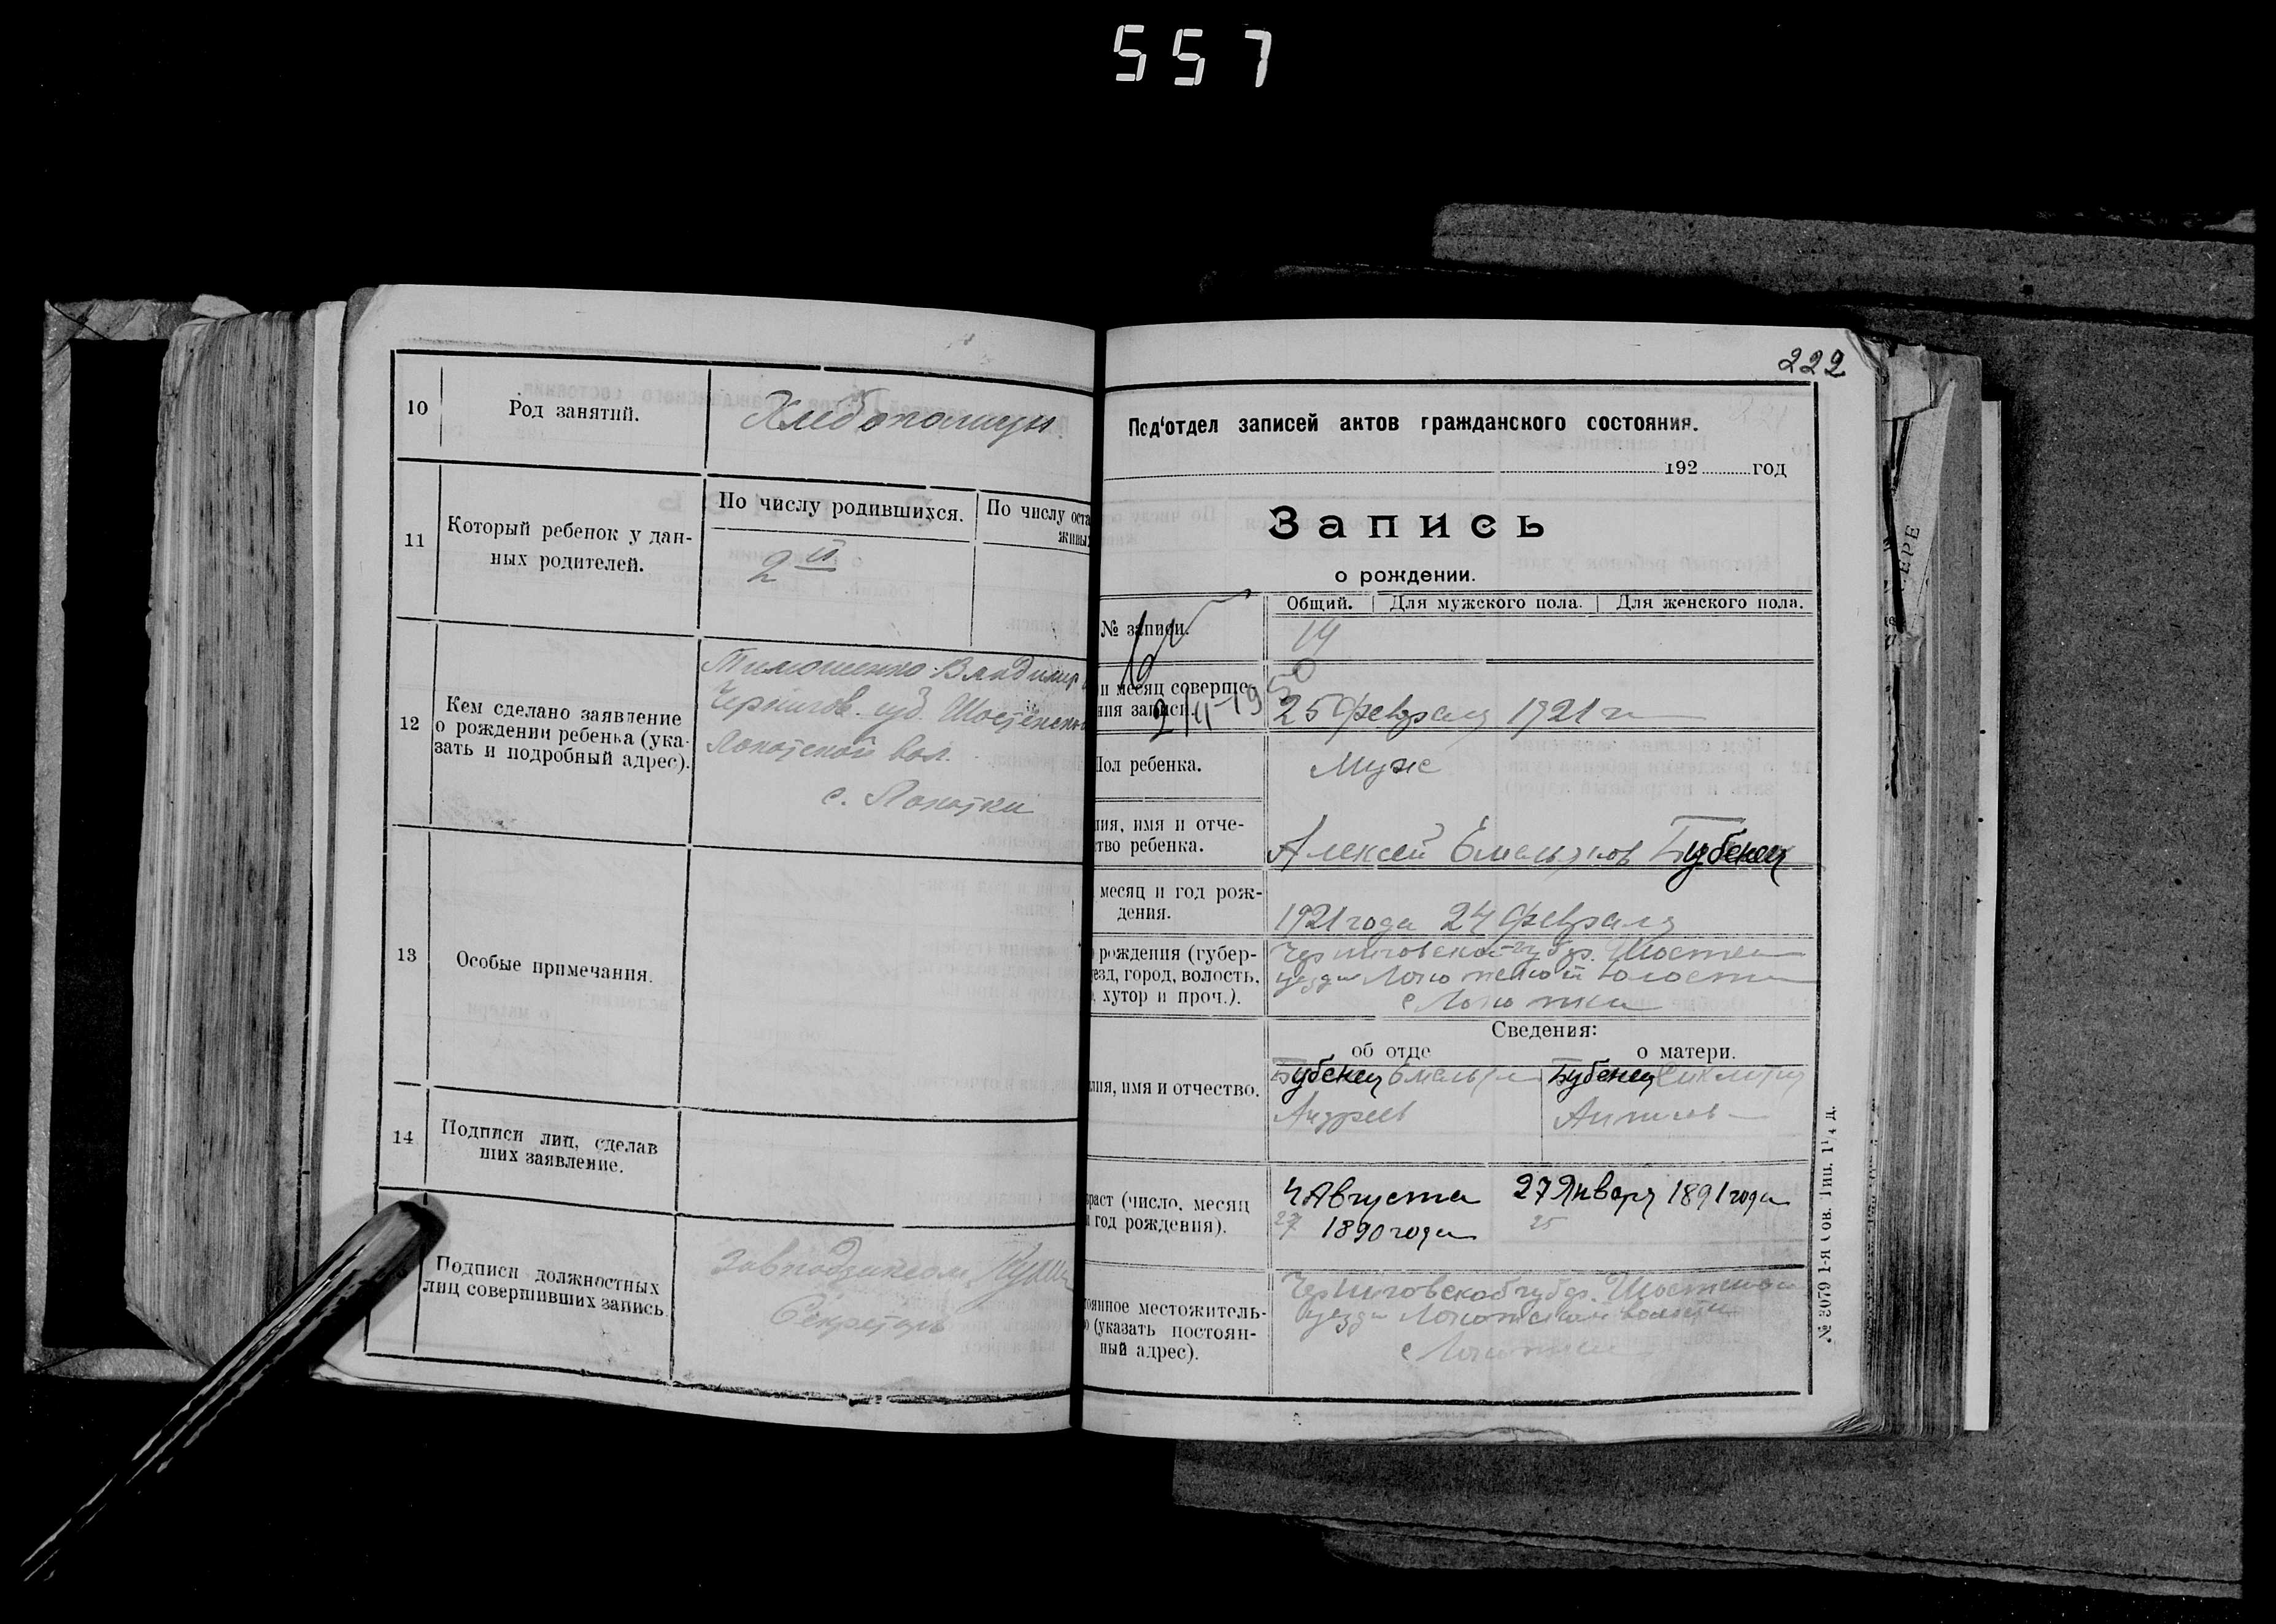 557
10
Род занятий.
Хлебопашцы
11
Который ребенок у дан-
ных родителей.
По числу родившихся.
По числу оста
живых
2й
12
Кем сделано заявление
о рождении ребенка (ука-
зать и подробный адрес).
Тимошенко Владимир
Чернигов. губ. Шостенской
Локотской вол.
с. Локотки
13
Особые примечания.
14
Подписи лиц, сделав
ших заявление.
Подписи должностных
лиц совершивших запись.
Завподзаксом
Секретарь
222
Под'отдел записей актов гражданского состояния.
192 год
Запись
о рождении.
№ записи.
Общий. Для мужского пола. Для женского пола.
14
и месяц соверше-
ния записи
25 февраля 1921 г
Пол ребенка.
Муж
ия, имя и отче-
тво ребенка.
Алексей Емельянов Бубенец
месяц и год рож-
дения.
1921 года 24 февраля
рождения (губер-
езд, город, волость,
хутор и проч.).
Черниговской губ. Шостен
уезда Локотской волости
с Локотки
Сведения:
об отце
о матери.
лия, имя и отчество.
Бубенец Емельян
Андреев
Бубенец
раст (число, месяц
и год рождения).
4 Августа
27 1890 года
27 Января 1891 года
25
оянное местожитель-
о (указать постоян-
ный адрес).
Черниговской губ. Шостенской
уезда Локотской волости
с Локотки
№ 3079 1-я Сов. Тип. 1¹/₄ д.